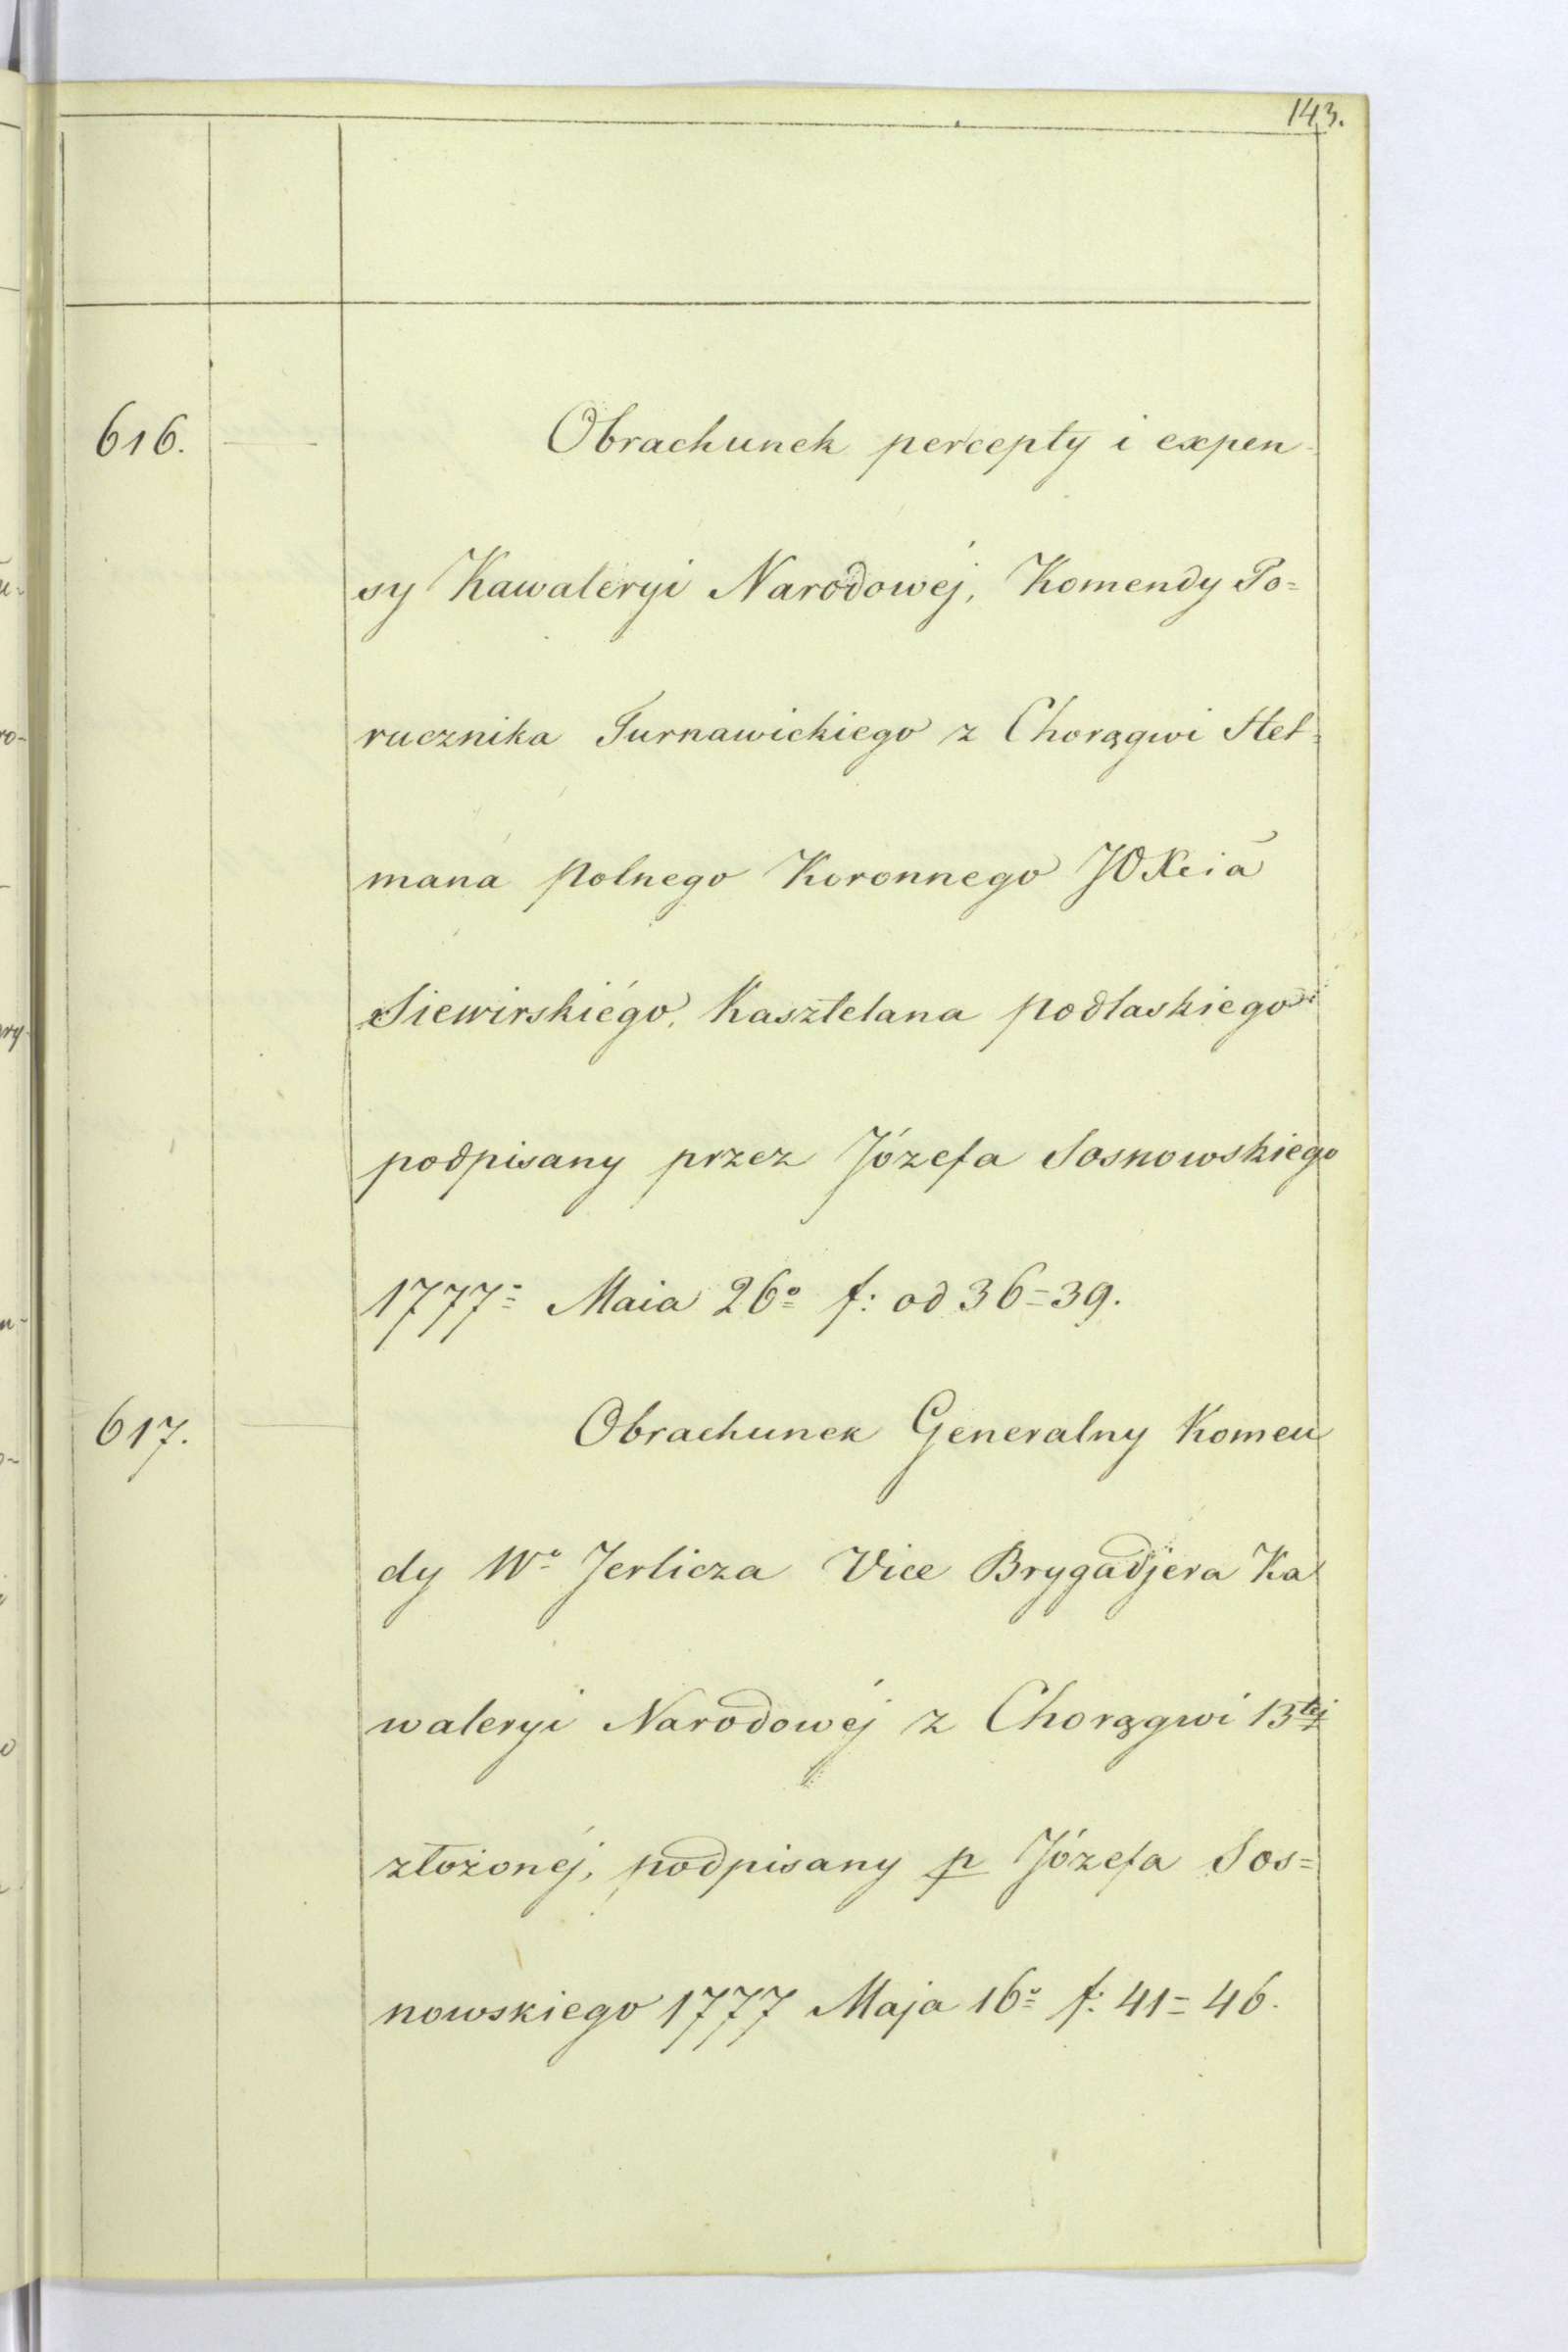 143.
616. Obrachunek percepty i expen-
sy Kawaleryi Narodowéj, Komendy Po=
rucznika Turnawickiego z Chorągwi Het=
mana polnego Koronnego JO Xcia
Siewirskiégo, Kasztelana podlaskiego
podpisany przez Józefa Sosnowskiego
1777º Maia 26º f: od 36=39.
617. Obrachunek Generalny Komen
dy Wº Jerlicza Vice Brygadjera Ka
waleryi Narodowéj z Chorągwi 13tej
złożonéj, podpisany p Józefa Sos=
nowskiego 1777 Maja 16º f: 41=46.